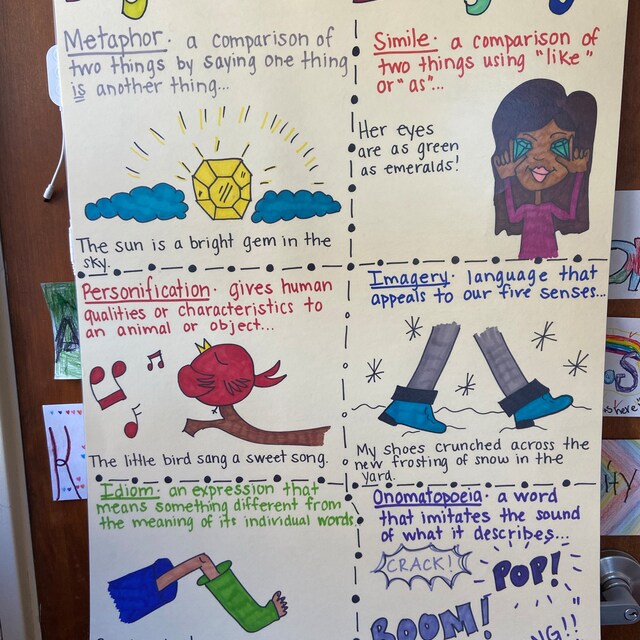 Metaphor· a comparison of
two things by saying one thing
is another thing...
The sun is a bright gem in the
sky.
Simile· a comparison of
two things using "like"
or "as"...
Her eyes
are as green
as emeralds!
Personification· gives human
qualities or characteristics to
an animal or object...
The little bird sang a sweet song.
Imagery· language that
appeals to our five senses...
My shoes crunched across the
new frosting of snow in the
yard.
Idiom· an expression that
means something different from
the meaning of its individual words
Onomatopoeia· a word
that imitates the sound
of what it describes...
CRACK!
POP!
BOOM!